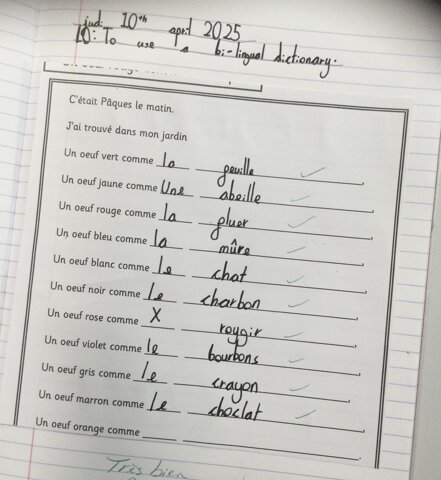 judi 10th april 2025
IO: To use a bi-lingual dictionary.
C'était Pâques le matin.
J'ai trouvé dans mon jardin
Un oeuf vert comme la geuille,
Un oeuf jaune comme Une abeille,
Un oeuf rouge comme la pluer,
Un oeuf bleu comme la mûre,
Un oeuf blanc comme le chat,
Un oeuf noir comme le charbon,
Un oeuf rose comme X roygir,
Un oeuf violet comme le bourbons,
Un oeuf gris comme le crayon,
Un oeuf marron comme le choclat,
Un oeuf orange comme
Très bien